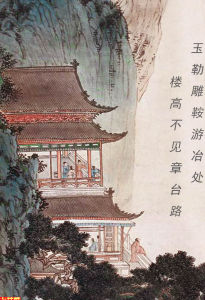 玉勒雕鞍游冶处
楼高不见章台路